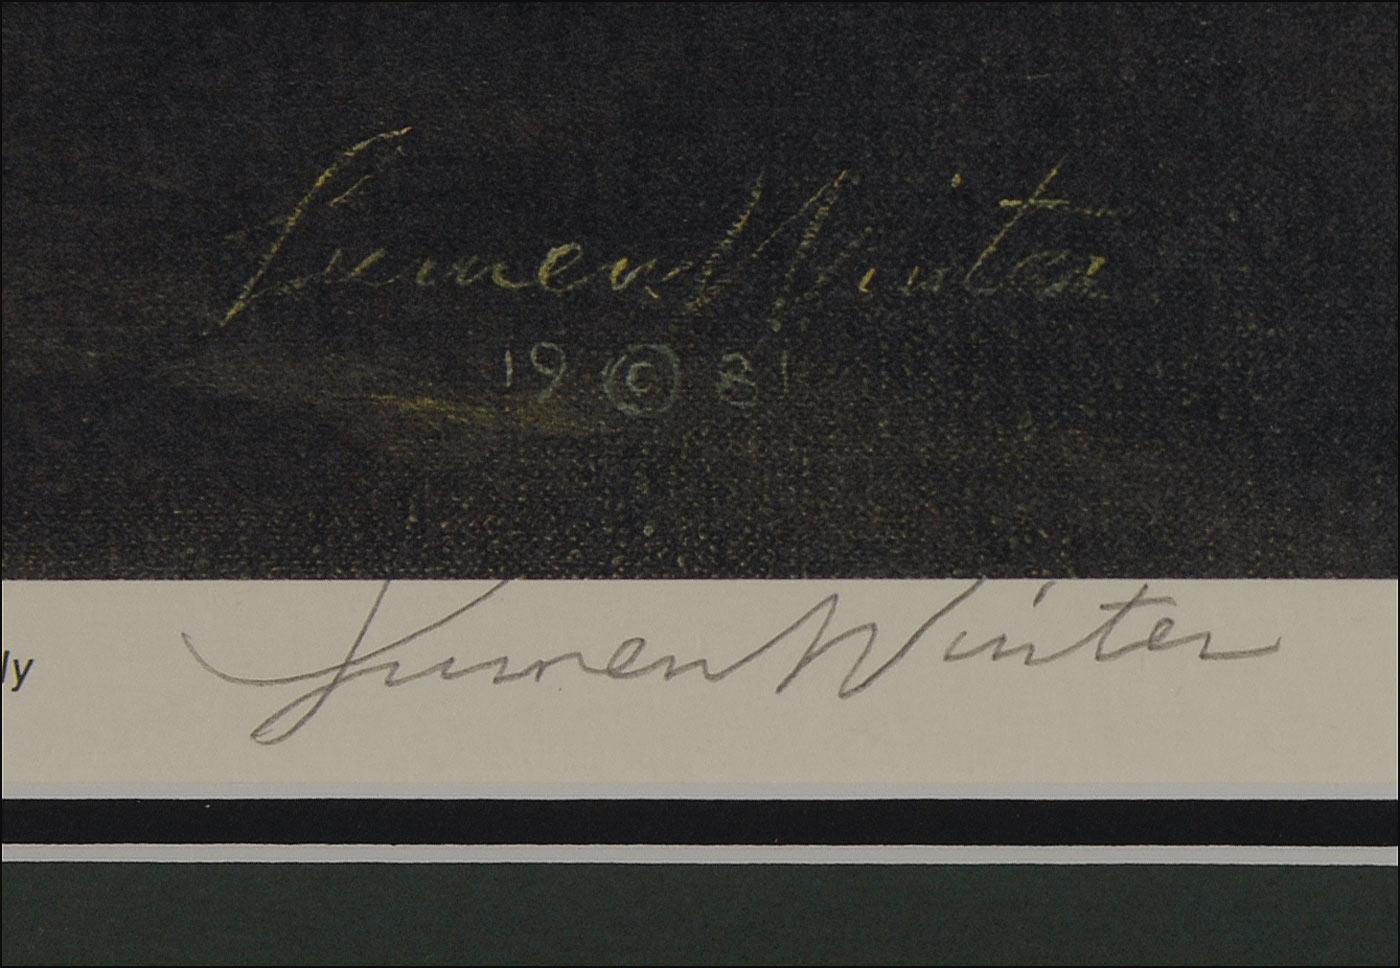 Lumen Winter
19 © 81
ly
Lumen Winter